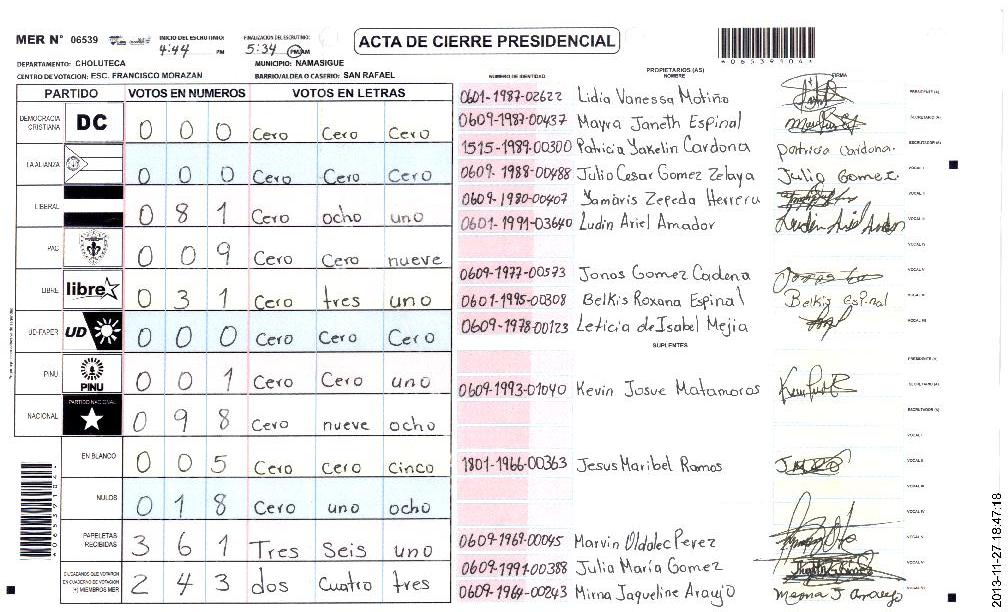 MER N° 06539 INICIO DEL ESCRUTINIO: 4:44 PM FINALIZACION DEL ESCRUTINIO: 5:34 PM AM
ACTA DE CIERRE PRESIDENCIAL
4065391041
DEPARTAMENTO: CHOLUTECA MUNICIPIO: NAMASIGUE
CENTRO DE VOTACION: ESC. FRANCISCO MORAZAN BARRIO/ALDEA O CASERIO: SAN RAFAEL
PARTIDO VOTOS EN NUMEROS VOTOS EN LETRAS
DEMOCRACIA CRISTIANA DC 0 0 0 Cero Cero Cero
LA ALIANZA 0 0 0 Cero Cero Cero
LIBERAL 0 8 1 Cero ocho uno
PAC 0 0 9 Cero Cero nueve
LIBRE libre 0 3 1 Cero tres uno
UD-FAPER UD 0 0 0 Cero Cero Cero
PINU PINU 0 0 1 Cero Cero uno
NACIONAL PARTIDO NACIONAL 0 9 8 Cero nueve ocho
EN BLANCO 0 0 5 Cero Cero Cinco
NULOS 0 1 8 Cero uno ocho
PAPELETAS RECIBIDAS 3 6 1 Tres Seis uno
CIUDADANOS QUE VOTARON EN CUADERNO DE VOTACION (+) MIEMBROS MER 2 4 3 dos Cuatro tres
4065391041
NUMERO DE IDENTIDAD PROPIETARIOS (AS) NOMBRE FIRMA
0601-1987-02622 Lidia Vanessa Motiño PRESIDENTE (A)
0609-1987-00437 Mayra Janeth Espinal SECRETARIO (A)
1515-1989-00300 Patricia Yakelin Cardona Patricia Cardona. ESCRUTADOR (A)
0609-1988-00488 Julio Cesar Gomez Zelaya Julio Gomez. VOCAL I
0609-1980-00407 Yamaris Zepeda Herrera VOCAL II
0601-1991-03640 Ludin Ariel Amador VOCAL III
VOCAL IV
0609-1977-00573 Jonos Gomez Cadena VOCAL V
0601-1995-00308 Belkis Roxana Espinal Belkis Espinal
0609-1978-00123 Leticia de Isabel Mejia
SUPLENTES
PRESIDENTE (A)
0609-1993-01040 Kevin Josue Matamoros SECRETARIO (A)
ESCRUTADOR (A)
VOCAL I
1801-1966-00363 Jesus Maribel Ramos VOCAL II
VOCAL III
VOCAL IV
0609-1969-00045 Marvin Oldalec Perez VOCAL V
0609-1991-00388 Julia María Gomez
0609-1964-00243 Mirna Jaqueline Araujo Mirna J Araujo
2013-11-27 18:47:18